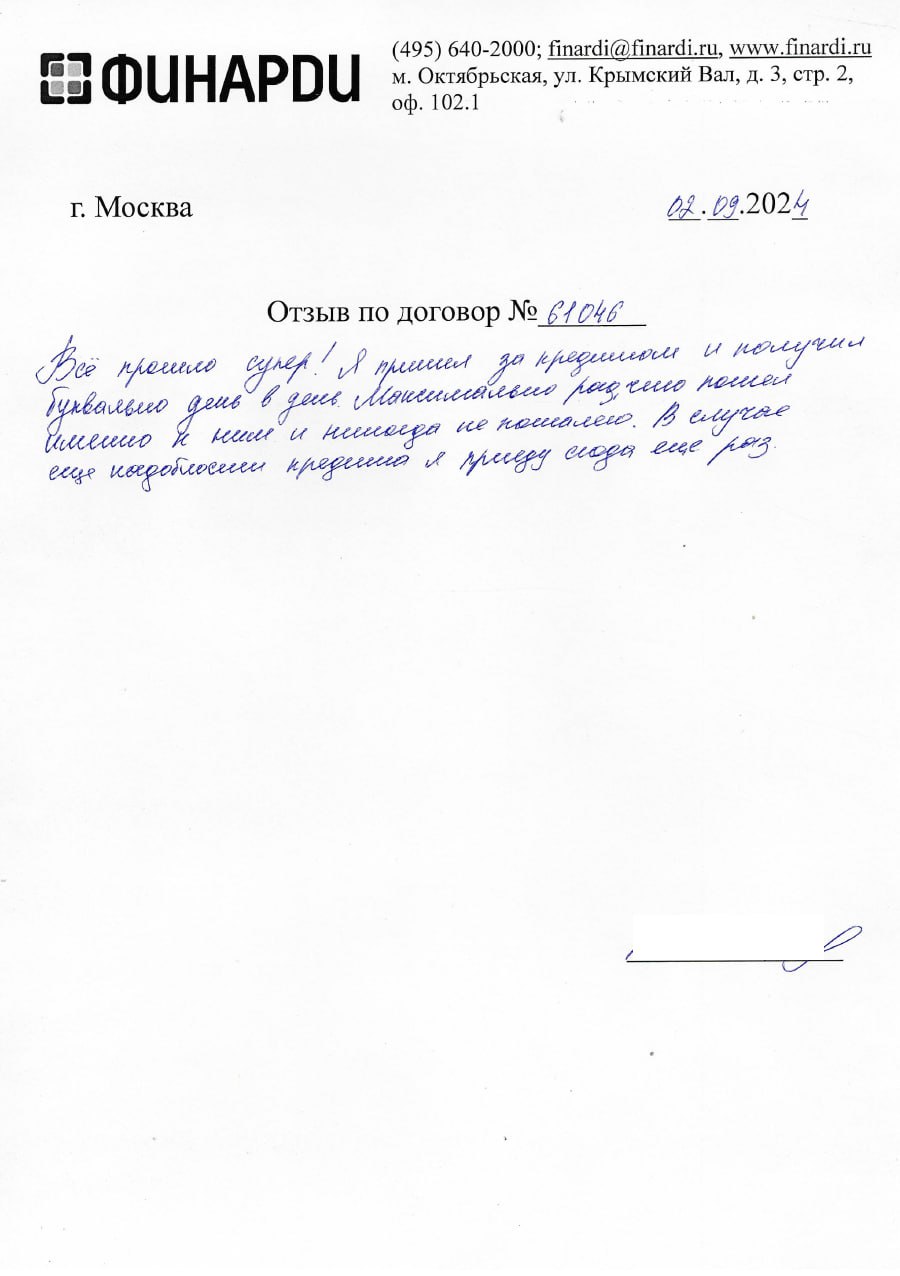 ФИНАРДИ
(495) 640-2000; finardi@finardi.ru, www.finardi.ru
м. Октябрьская, ул. Крымский Вал, д. 3, стр. 2,
оф. 102.1
г. Москва
02.09.2024
Отзыв по договор № 61046
Всё прошло супер! Я пришел за кредитом и получил
буквально день в день. Максимально рад, что пошел
именно к ним и никогда не пожалею. В случае
еще надобности кредита я приеду сюда еще раз.